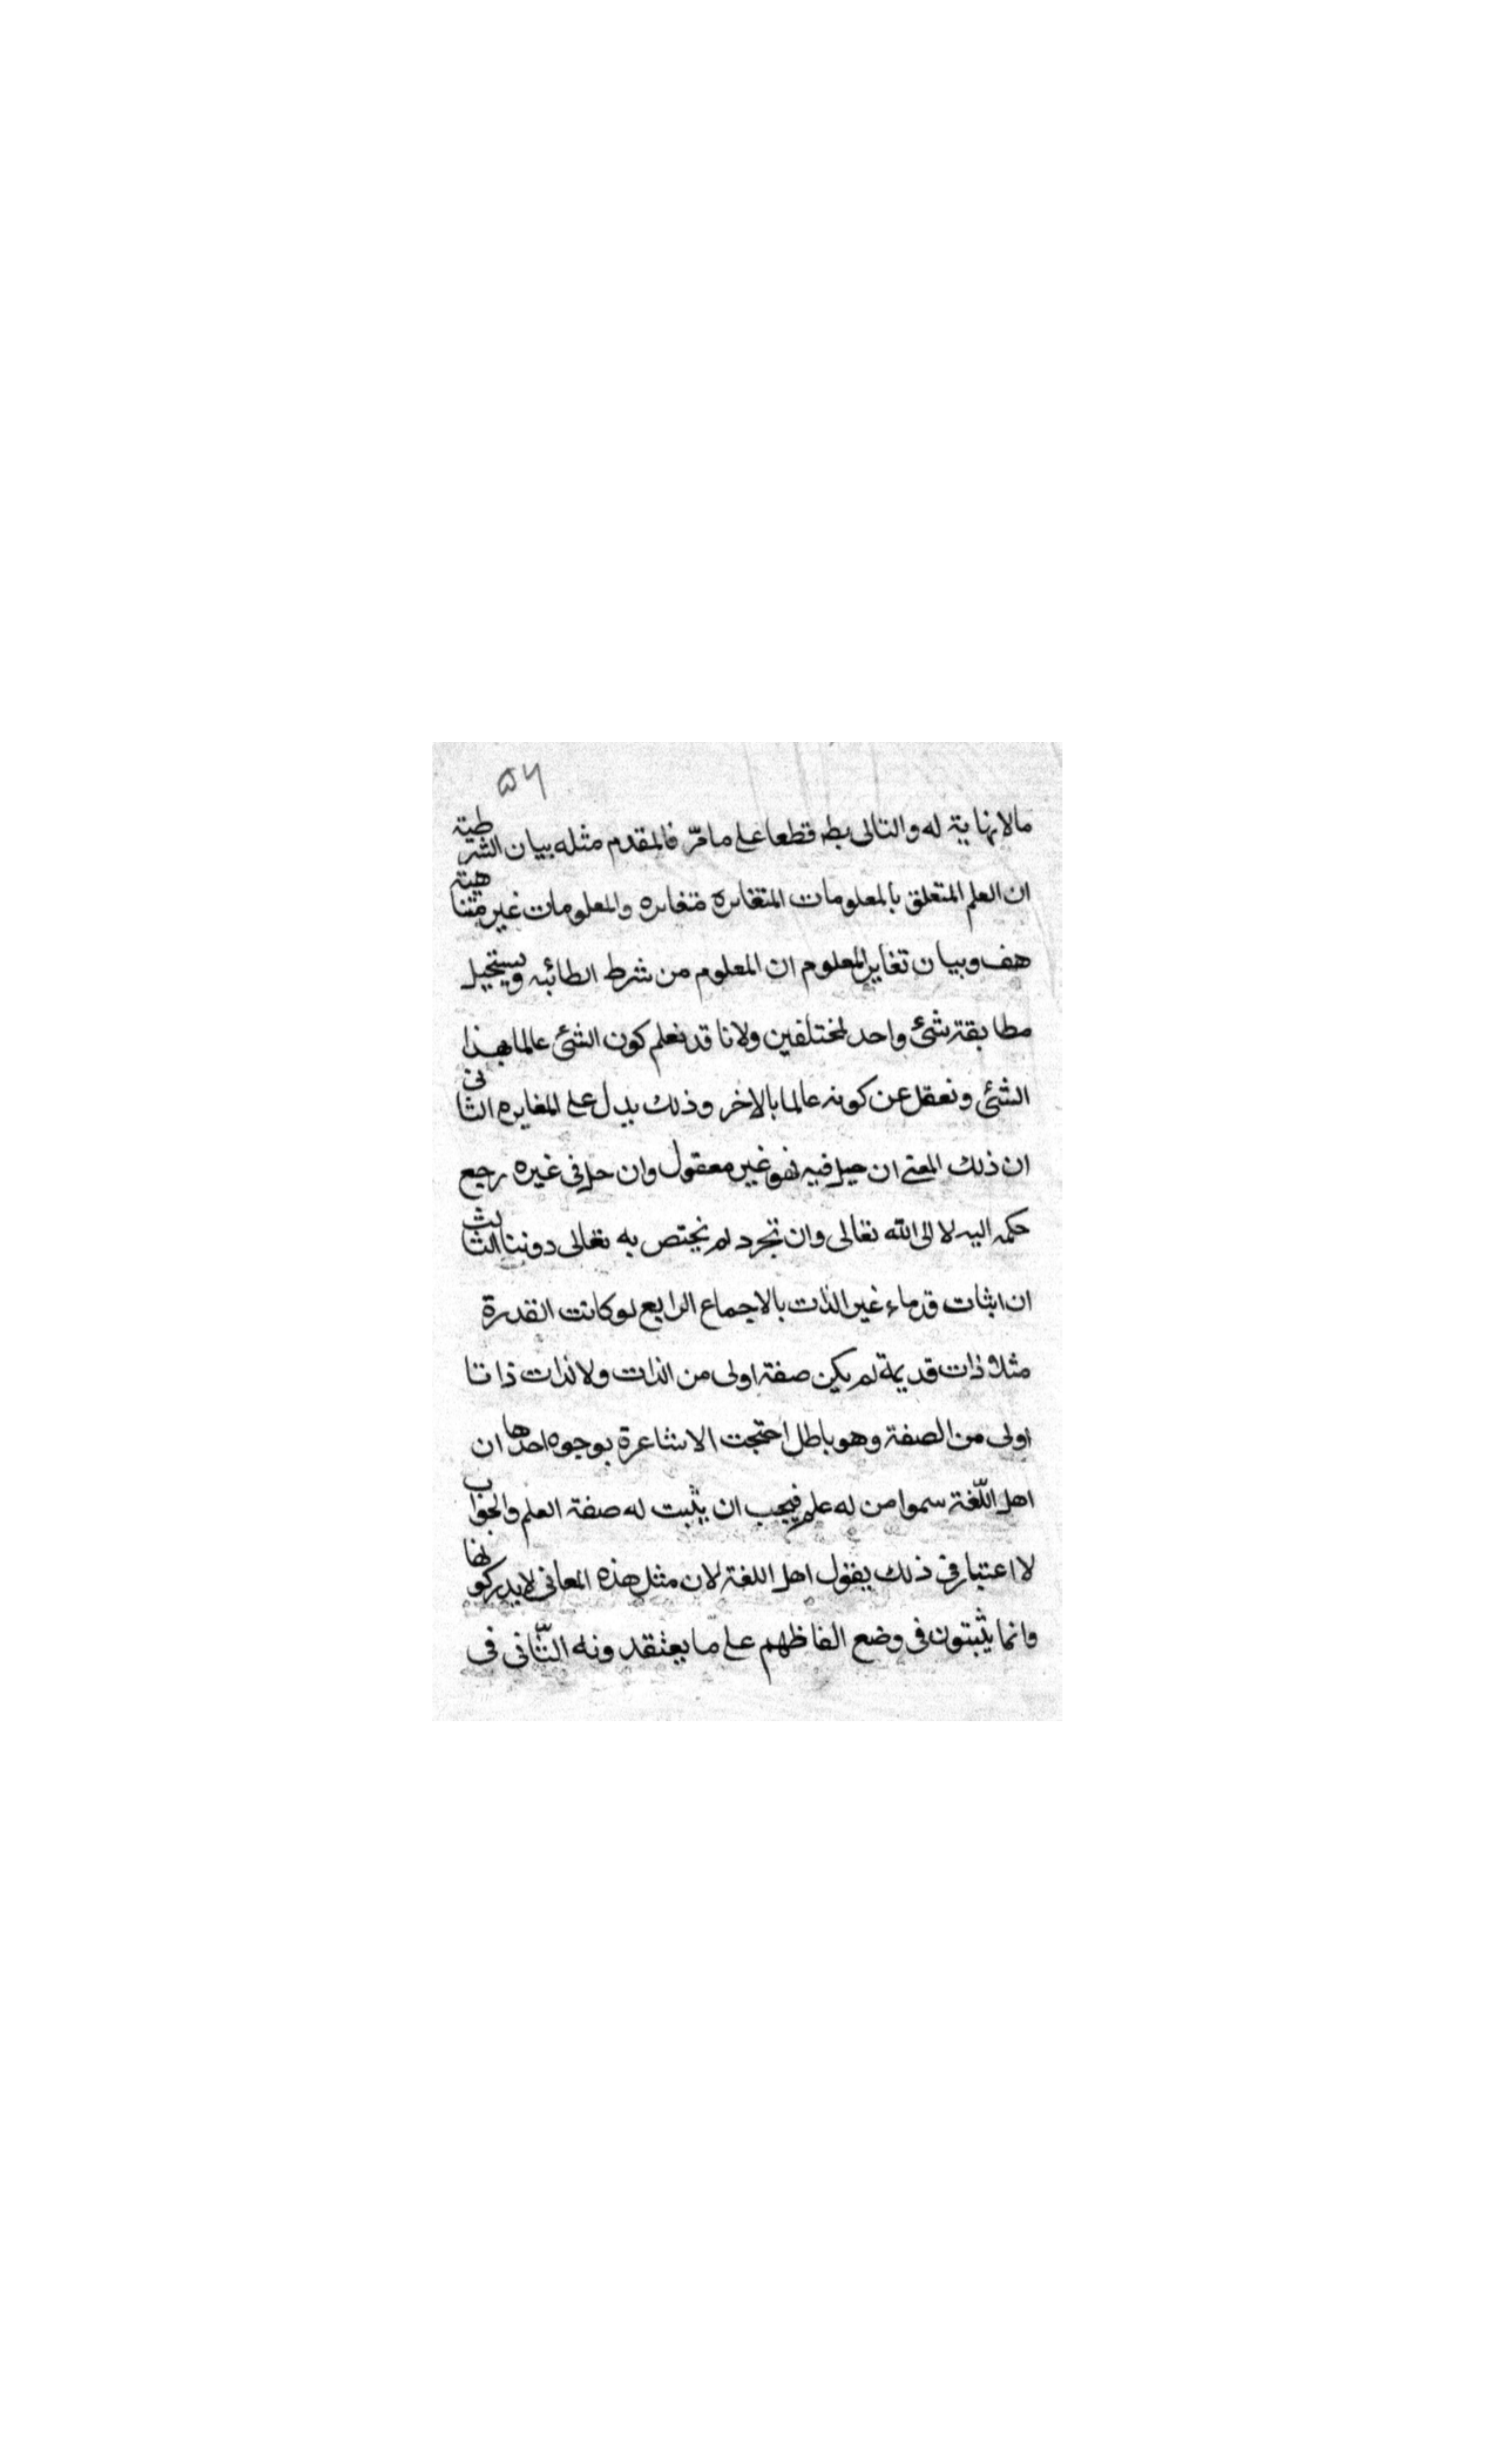 ٥٦
مالا نهاية له والتالى بط قطعا على ما مرّ فالمقدم مثله بيان الشرطية
ان العلم المتعلق بالمعلومات المتغايرة متغايره والمعلومات غير متناهية
هف وبيان تغاير المعلوم ان المعلوم من شرط ويستحيل
مطابقة شئ واحد لمختلفين ولانا قد نعلم كون الشئ عالما بهذا
الشئ ونعقل عن كونه عالما بالاخر وذلك يدل على المغايره الثانى
ان ذلك المعنى ان حل فيه فهو غير معقول وان حل فى غيره رجع
حكمه اليه لا الى الله تعالى وان تجرد لم يختص به تعالى دوننا الثالث
ان اثبات قدماء غير الذات بالاجماع الرابع لو كانت القدرة
مثلا ذات قديمة لم يكن صفة اولى من الذات ولا الذات ذاتا
اولى من الصفة وهو باطل احتجت الاشاعرة بوجوه احدها ان
اهل اللّغة سموا من له علم فيجب ان يثبت له صفة العلم والجواب
لا اعتبار فى ذلك بقول اهل اللغة لان مثل هذه المعانى لا يدركونها
وانما يثبتون فى وضع الفاظهم على ما يعتقدونه الثّانى فى